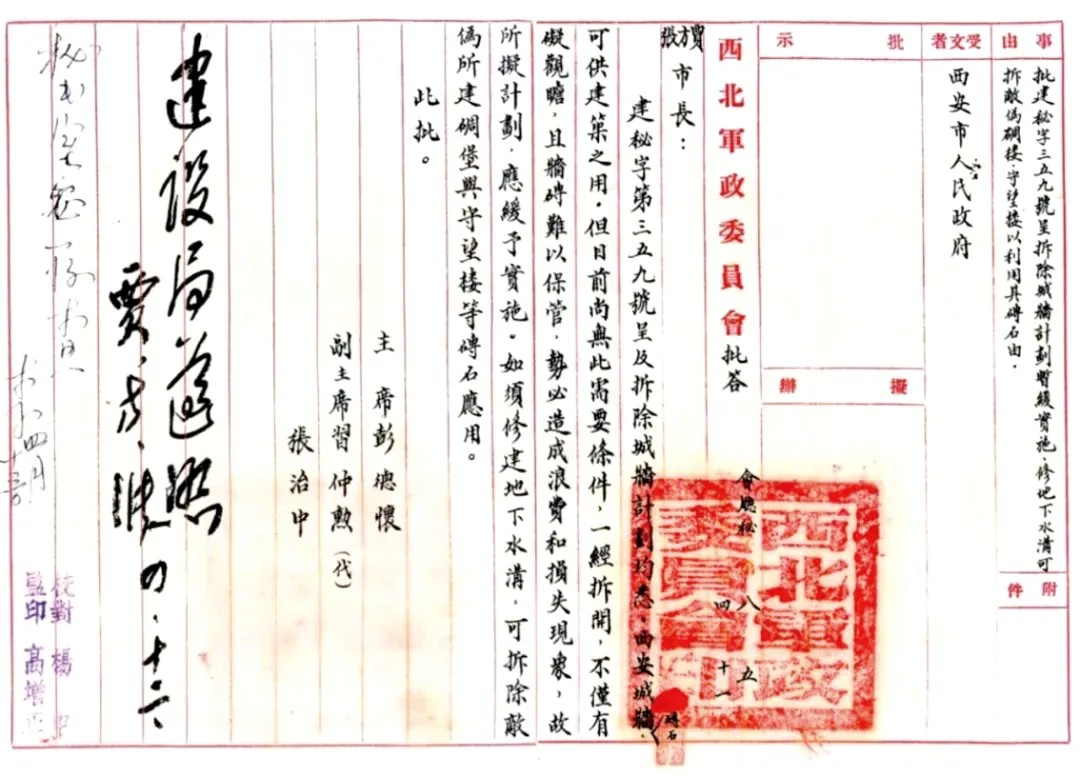 事由
批建秘字三五九號呈拆除城牆計劃暫緩實施,修地下水溝可
拆敵偽碉楼,守望楼以利用其磚石由。
附件
受文者
西安市人民政府
批示
擬辦
西北軍政委員會批答
會廳秘
八五
四十一
西北軍政委員會印
方賈張市長:
建秘字第三五九號呈及拆除城牆計劃均悉。西安城牆磚石
可供建築之用。但目前尚無此需要條件,一經拆開,不僅有
礙觀瞻,且牆磚難以保管,勢必造成浪費和損失現象,故
所擬計劃,應緩予實施。如須修建地下水溝,可拆除敵
偽所建碉堡與守望楼等磚石應用。
此批。
主席彭德懷
副主席習仲勲(代)
張治中
建設局遵照
賈、方、張 四、十二、
校對 楊
監印 高增